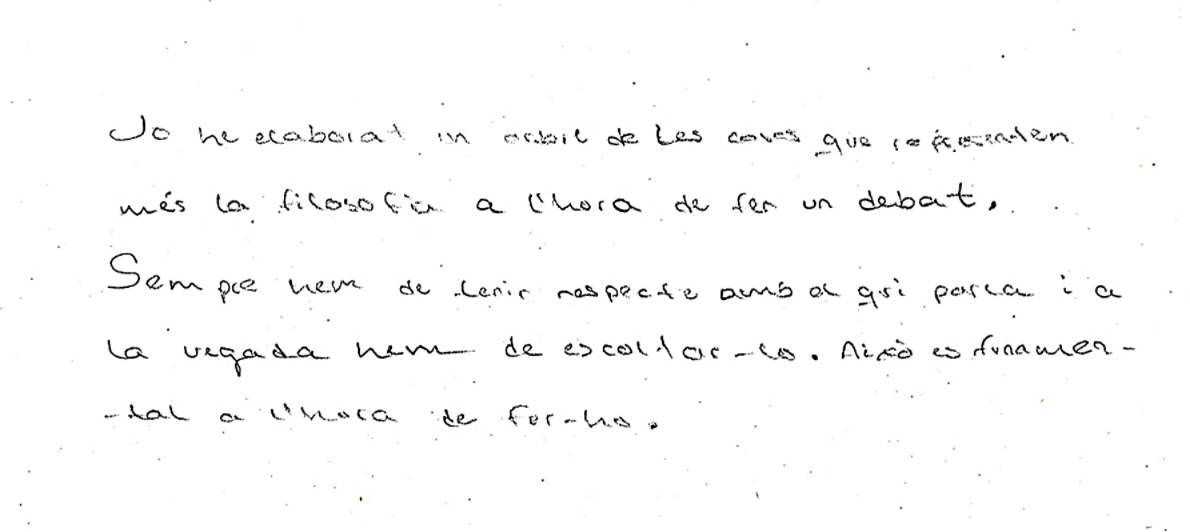 Jo he elaborat un arbre de les coses que representen
més la filosofia a l'hora de fer un debat.
Sempre hem de tenir respecte amb el qui parla i a
la vegada hem de escoltar-lo. Això es funamen-
-tal a l'hora de fer-ho.